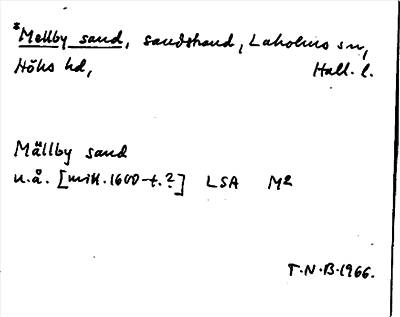 *Mellby sand, sandstrand, Laholms sn,
Höks hd, Hall. l.
Mällby sand
u.å. [mitt. 1600-t.?] LSA M2
T.N.B. 1966.